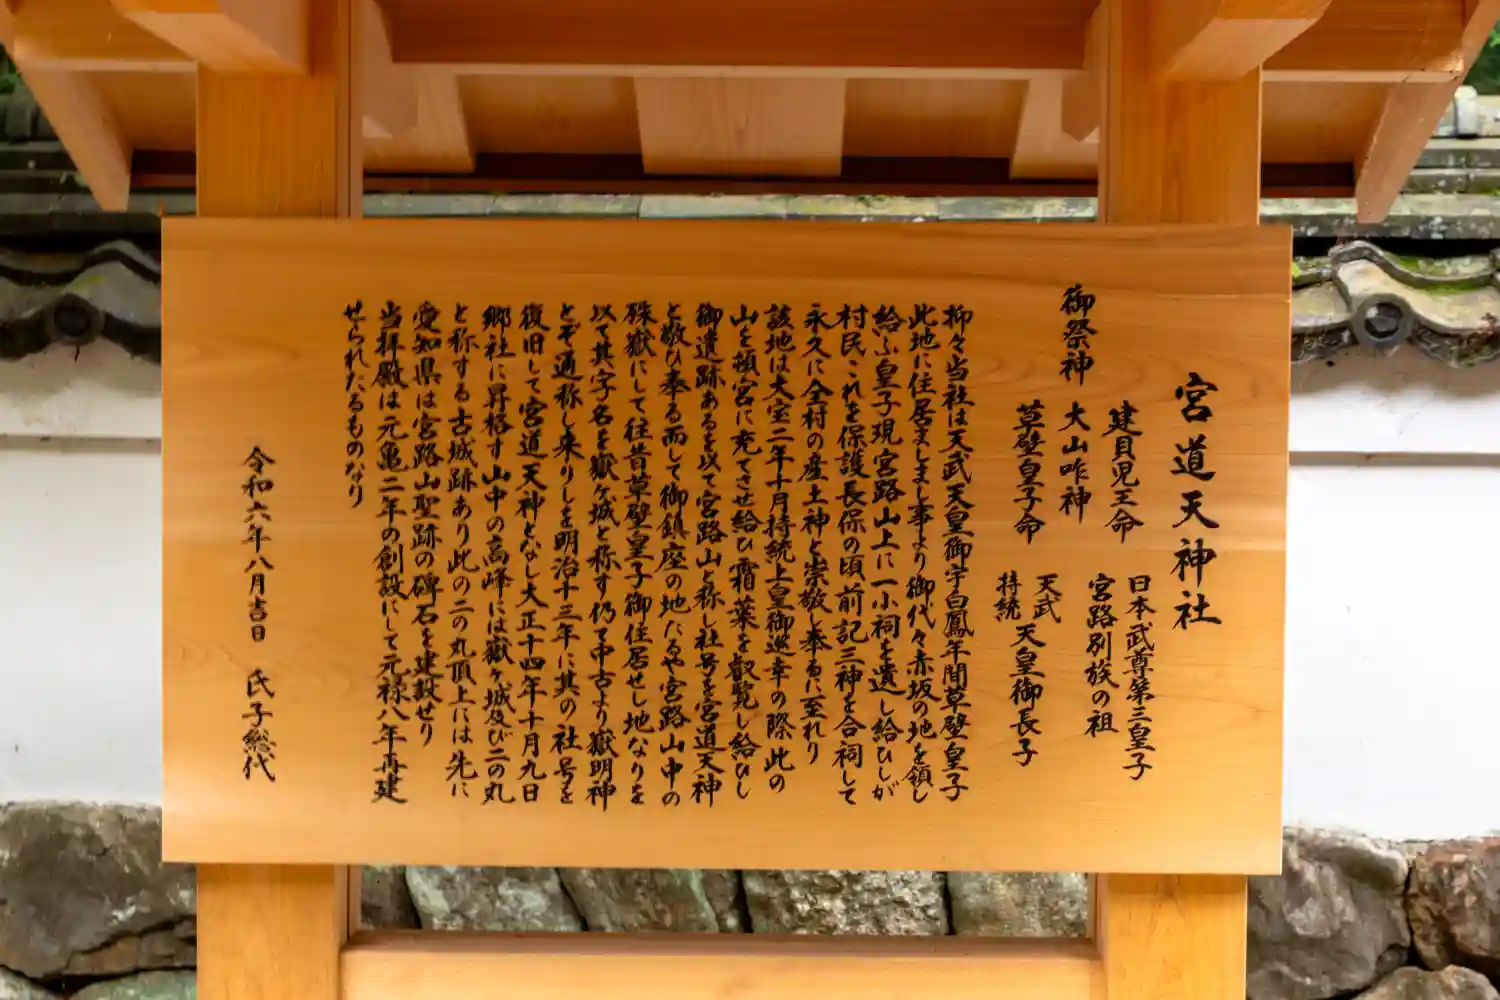 宮道天神社
建貝児王命 日本武尊第三皇子
宮路別族の祖
御祭神 大山咋神
草壁皇子命 天武
持統 天皇御長子
抑々当社は天武天皇御宇白鳳年間草壁皇子
此地に住居ましまし事より御代々赤坂の地を領し
給ふ皇子現宮路山上に一小祠を遺し給ひしが
村民これを保護長保の頃前記三神を合祠して
永久に全村の産土神と崇敬し奉るに至れり
該地は大宝二年十月持統上皇御巡幸の際此の
山を頓宮に充てさせ給ひ霜葉を叡覧し給ひし
御遺跡あるを以て宮路山と称し社号を宮道天神
と敬ひ奉る而して御鎮座の地たるや宮路山中の
殊嶽にして往昔草壁皇子御住居せし地なりを
以て其字名を嶽ヶ城と称す仍て中古より嶽明神
とぞ通称し来りしを明治十三年に其の社号を
復旧して宮道天神となし大正十四年十月九日
郷社に昇格す山中の高峰には嶽ヶ城及び二の丸
と称する古城跡あり此の二の丸頂上には先に
愛知県は宮路山聖跡の碑石を建設せり
当拝殿は元亀二年の創設にして元禄八年再建
せられたるものなり
令和六年八月吉日 氏子総代